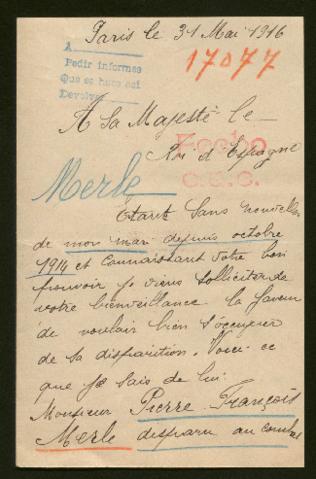 Paris le 31 Mai 1916
A
Pedir informes
Que se hace así
Devolver
17077
A Sa Majesté le
Roi d'Espagne
Fecho
Merle
Etant sans nouvelles
de mon mari depuis octobre
1914 et connaissant votre bon
pouvoir je viens solliciter de
votre bienveillance la faveur
de vouloir bien s'occuper
de sa disparition. Voici ce
que je sais de lui.
Monsieur Pierre François
Merle disparu au combat